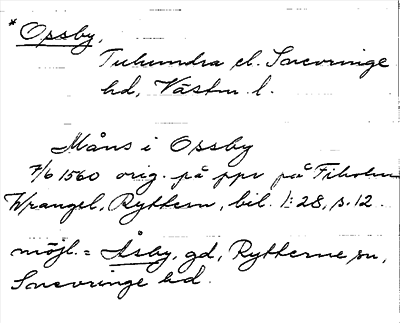 * Opsby,
Tuhundra el. Snevringe
hd, Västm. l.
Måns i Opsby
7/6 1560 orig. på ppr på Fiholm
Wrangel, Ryttern, bil. 1:28, s. 12.
möjl. = Åsby, gd, Rytterne sn,
Snevringe hd.